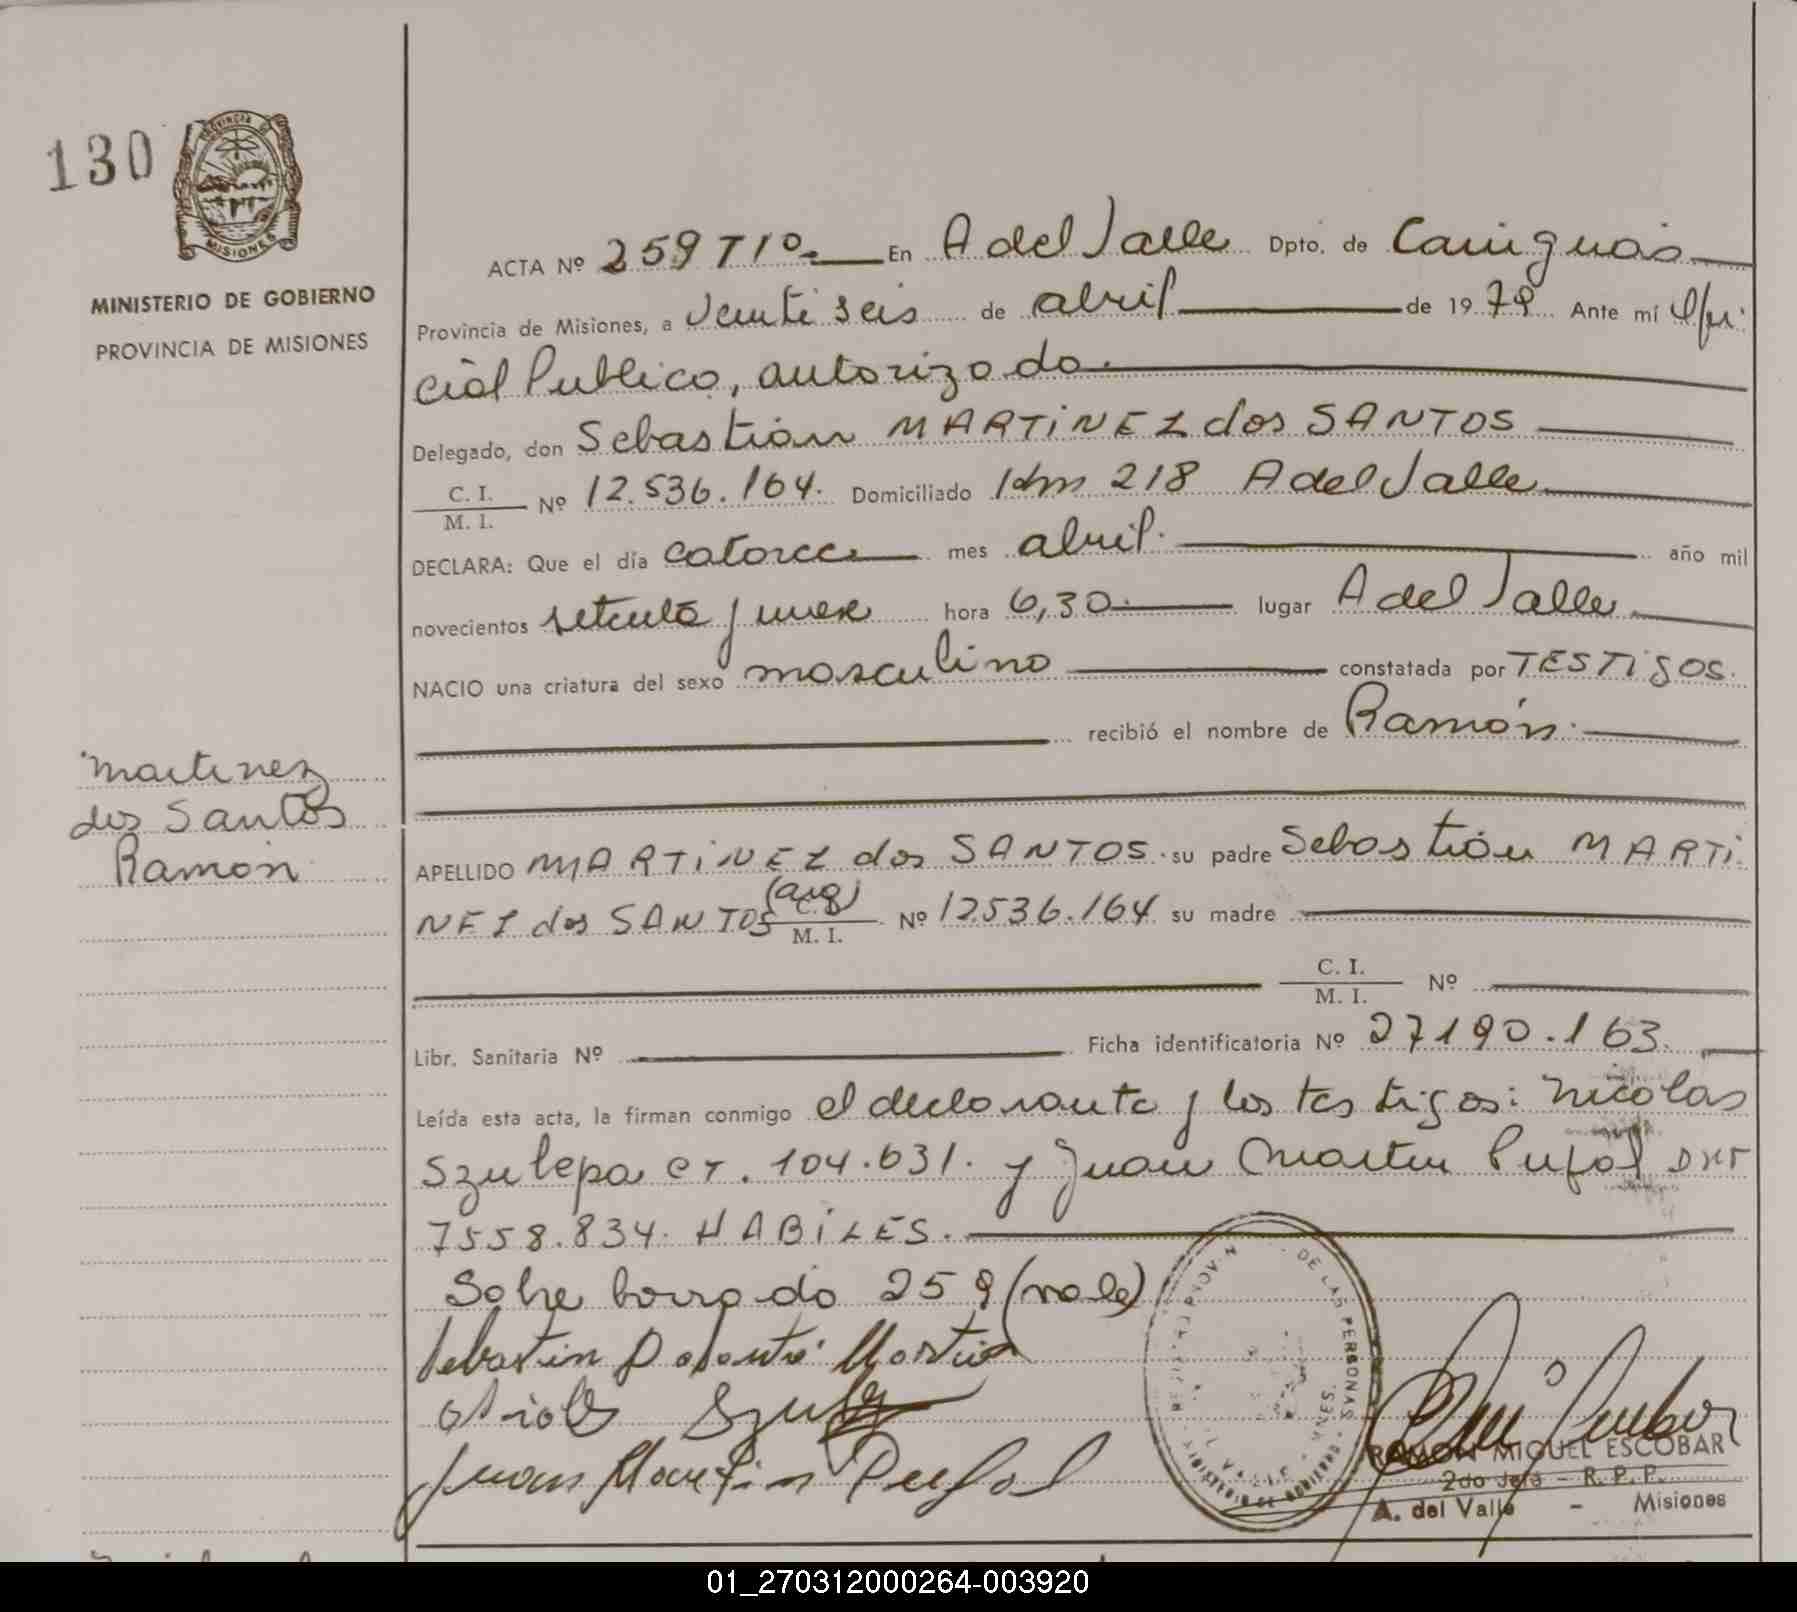 130
PROVINCIA DE
MISIONES
MINISTERIO DE GOBIERNO
PROVINCIA DE MISIONES
ACTA Nº 259 T Iº. En A del Valle Dpto. de Cainguás
Provincia de Misiones, a veintiseis de abril de 1979 Ante mí Ofi
cial Publico, autorizado.
Delegado, don Sebastián MARTiNEZ dos SANTOS
C. I.
M. I. Nº 12.536.164. Domiciliado Km 218 A del Valle
DECLARA: Que el día catorce mes abril. año mil
novecientos setenta y nueve hora 6,30. lugar A del Valle
NACIO una criatura del sexo masculino constatada por TESTiGOS.
recibió el nombre de Ramón.
Martinez
dos Santos
Ramón
APELLIDO MARTiNEZ dos SANTOS. su padre Sebastián MARTi
NEZ dos SANTOS (arg) C. I. M. I. Nº 12536.164 su madre
C. I.
M. I. Nº
Libr. Sanitaria Nº Ficha identificatoria Nº 27190.163.
Leída esta acta, la firman conmigo el declarante y los testigos: Nicolas
Szulepa CI. 104.631. y Juan Martin Pujol DNI
7558.834. HABiLES.
Sobre borrado 259 (vale)
Juan Martin Pujol
DE LAS PERSONAS
RAMON MIGUEL ESCOBAR
2do Jefe - R. P. P.
A. del Valle - Misiones
01_270312000264-003920